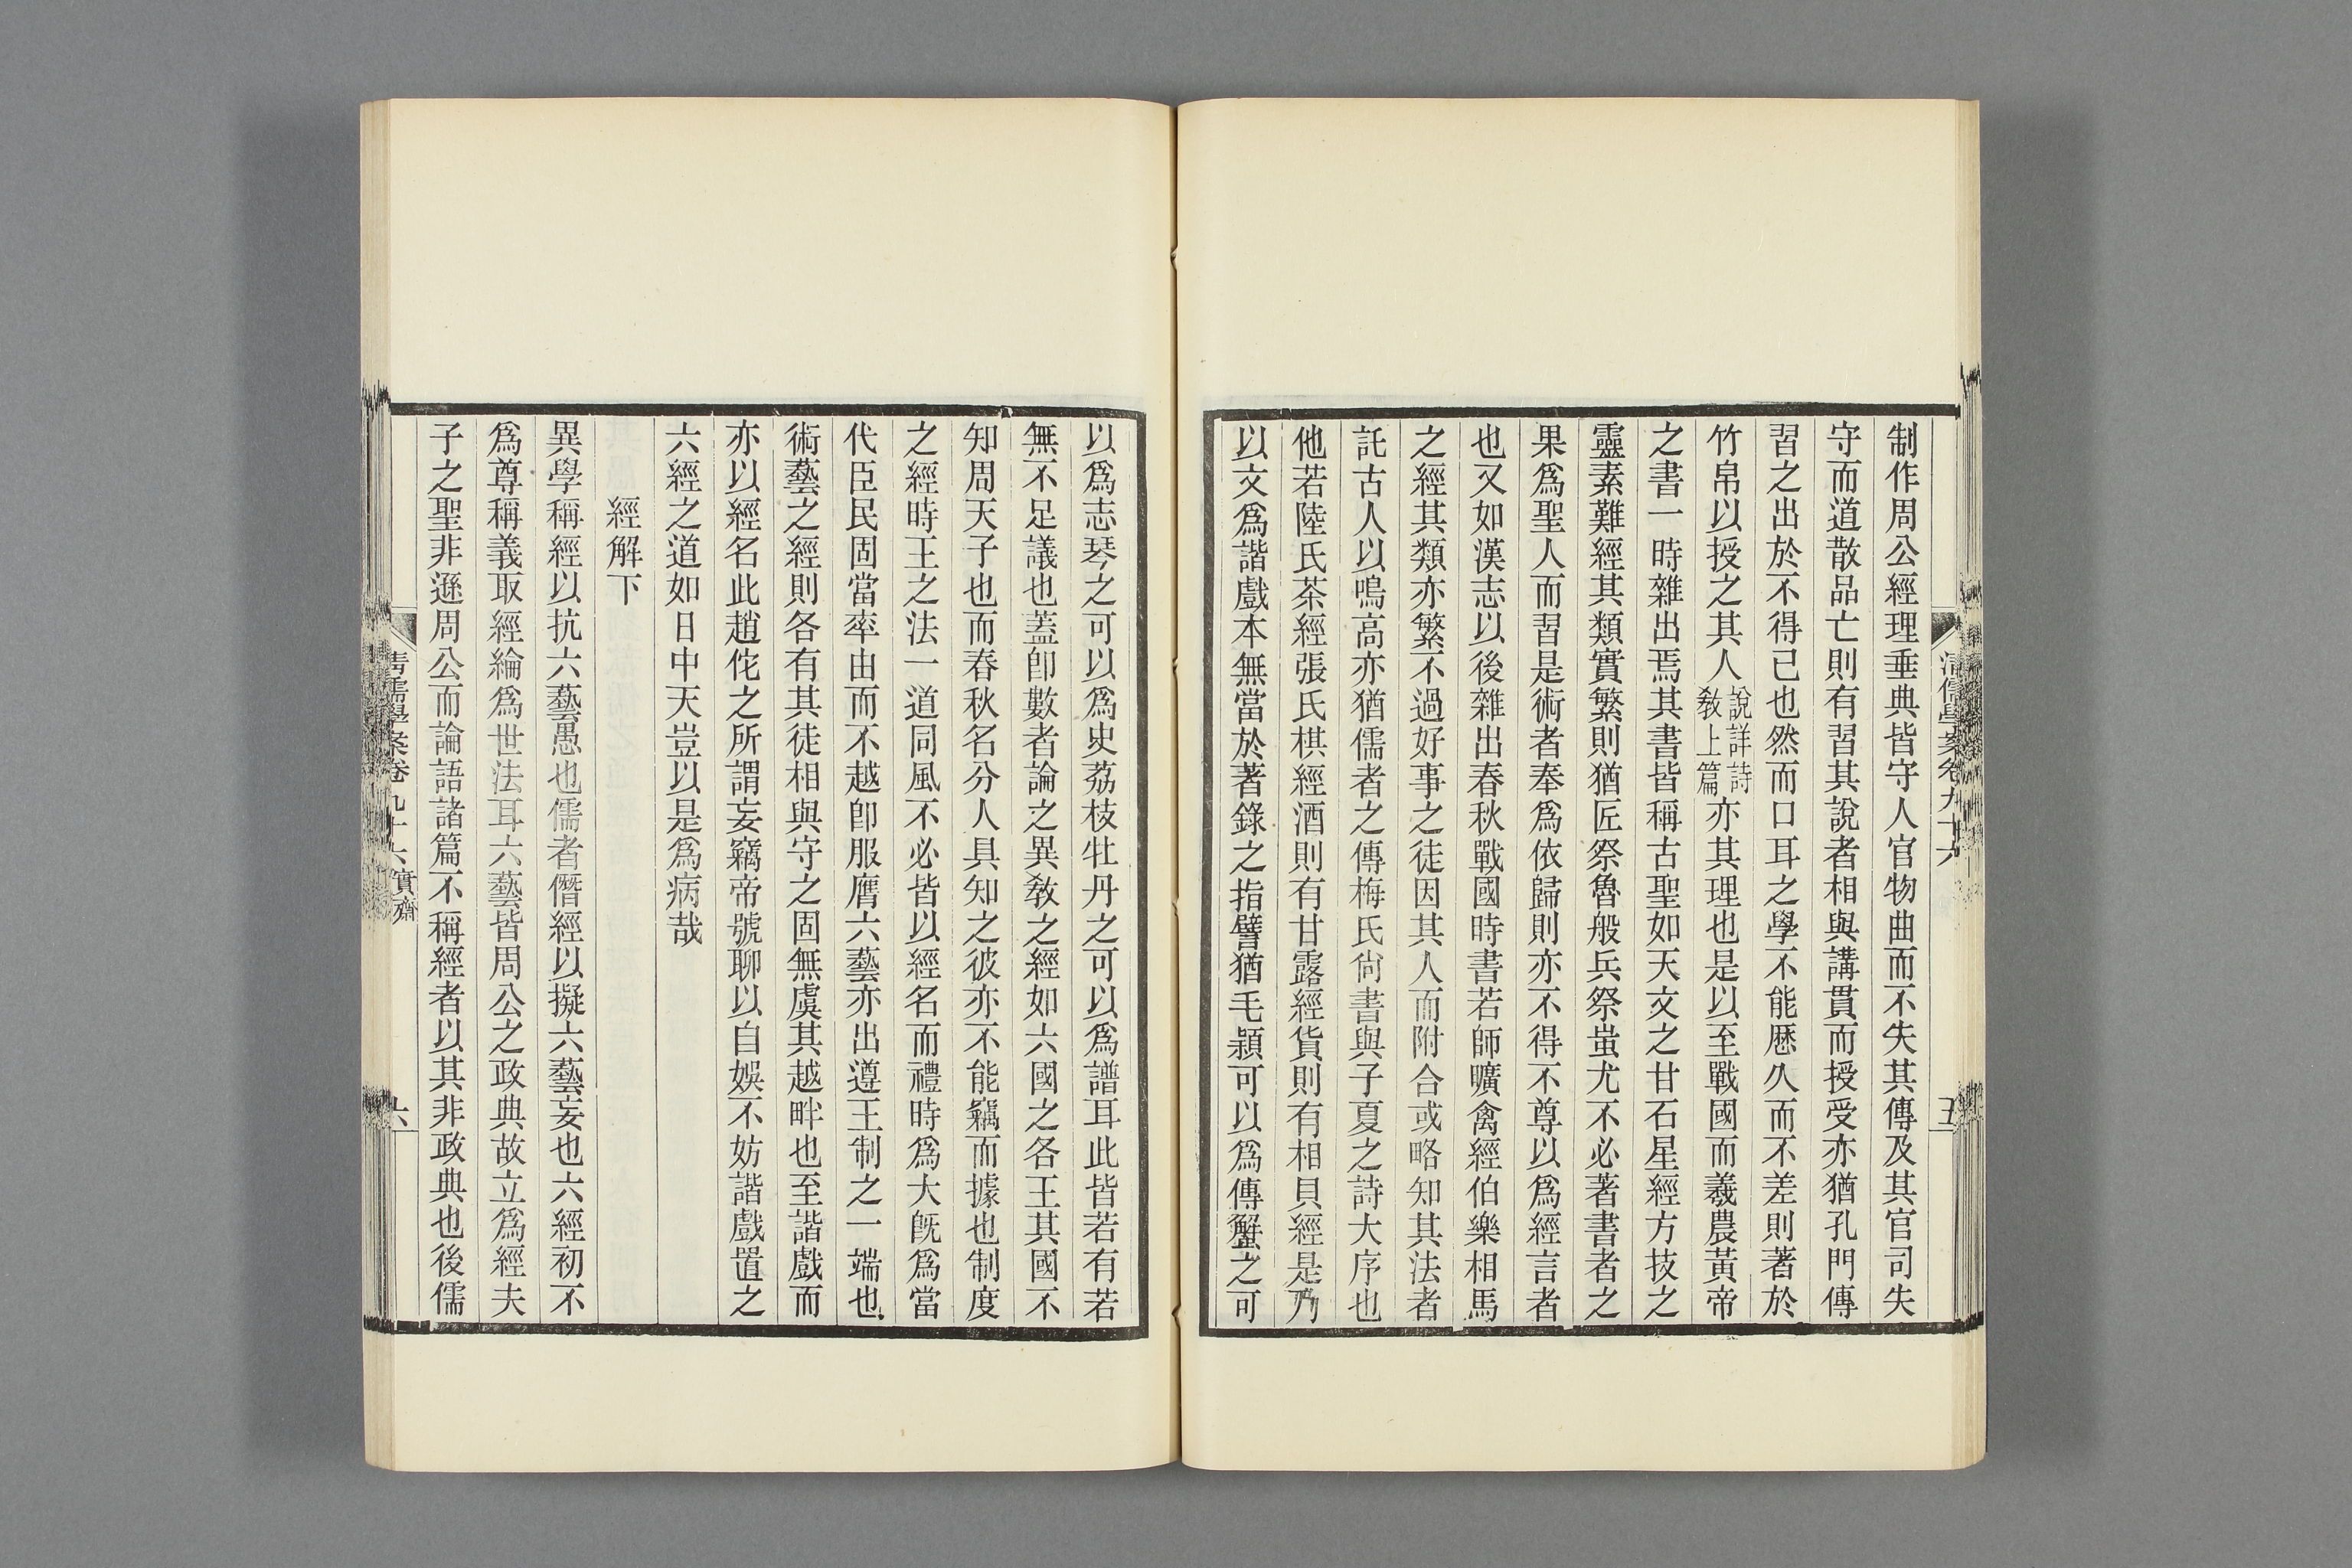 清儒學案卷九十六
五
制作周公經理垂典皆守人官物曲而不失其傳及其官司失
守而道散品亡則有習其說者相與講貫而授受亦猶孔門傳
習之出於不得已也然而口耳之學不能歷久而不差則著於
竹帛以授之其人說詳詩敎上篇亦其理也是以至戰國而羲農黃帝
之書一時雜出焉其書皆稱古聖如天文之甘石星經方技之
靈素難經其類實繁則猶匠祭魯般兵祭蚩尤不必著書者之
果爲聖人而習是術者奉爲依歸則亦不得不尊以爲經言者
也又如漢志以後雜出春秋戰國時書若師曠禽經伯樂相馬
之經其類亦繁不過好事之徒因其人而附合或略知其法者
託古人以鳴高亦猶儒者之傳梅氏尙書與子夏之詩大序也
他若陸氏茶經張氏棋經酒則有甘露經貨則有相貝經是乃
以文爲諧戲本無當於著錄之指譬猶毛穎可以爲傳蟹之可
以爲志琴之可以爲史荔枝牡丹之可以爲譜耳此皆若有若
無不足議也蓋卽數者論之異敎之經如六國之各王其國不
知周天子也而春秋名分人具知之彼亦不能竊而據也制度
之經時王之法一道同風不必皆以經名而禮時爲大旣爲當
代臣民固當率由而不越卽服膺六藝亦出遵王制之一端也
術藝之經則各有其徒相與守之固無虞其越畔也至諧戲而
亦以經名此趙佗之所謂妄竊帝號聊以自娛不妨諧戲置之
六經之道如日中天豈以是爲病哉
經解下
異學稱經以抗六藝愚也儒者僭經以擬六藝妄也六經初不
爲尊稱義取經綸爲世法耳六藝皆周公之政典故立爲經夫
子之聖非遜周公而論語諸篇不稱經者以其非政典也後儒
清儒學案卷九十六 實齋
六